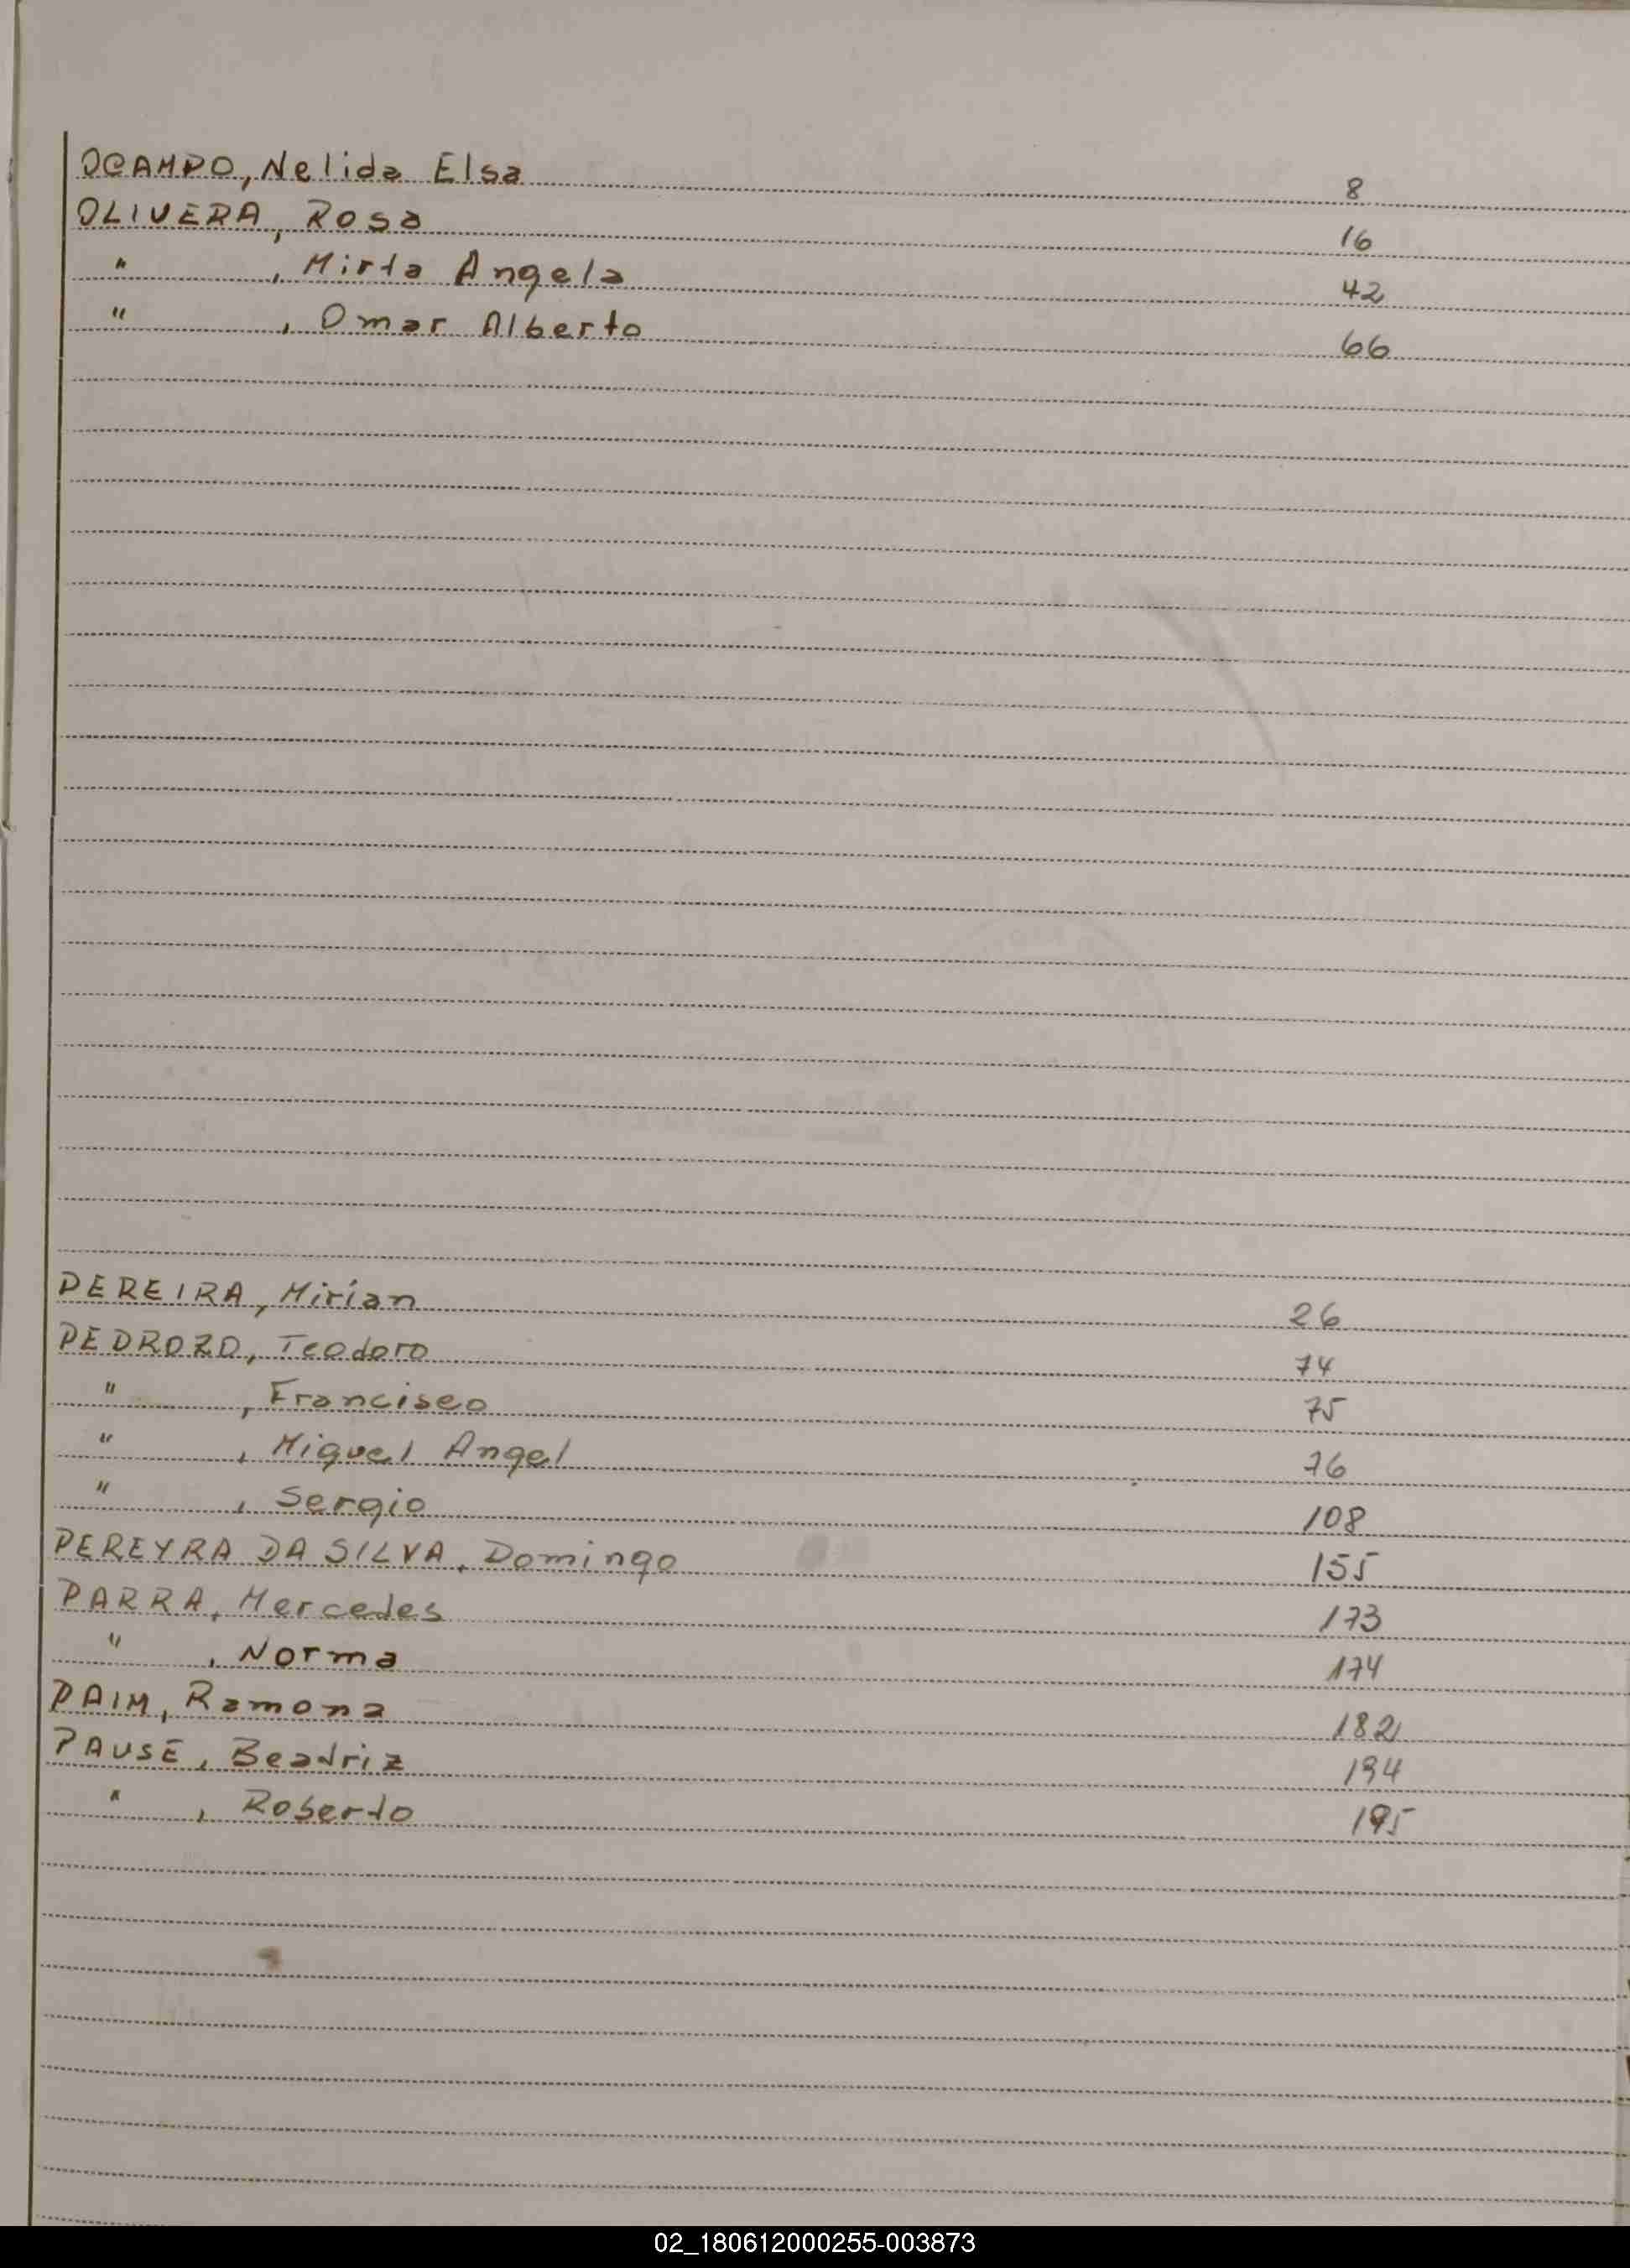 OCAMPO, Nelida Elsa 8
OLIVERA, Rosa 16
" , Mirta Angela 42
" , Omar Alberto 66
PEREIRA, Mirian 26
PEDROZO, Teodoro 74
" , Francisco 75
" , Miguel Angel 76
" , Sergio 108
PEREYRA DA SILVA, Domingo 155
PARRA, Mercedes 173
" , Norma 174
PAIM, Ramona 182
PAUSE, Beatriz 194
" , Roberto 195
02_180612000255-003873